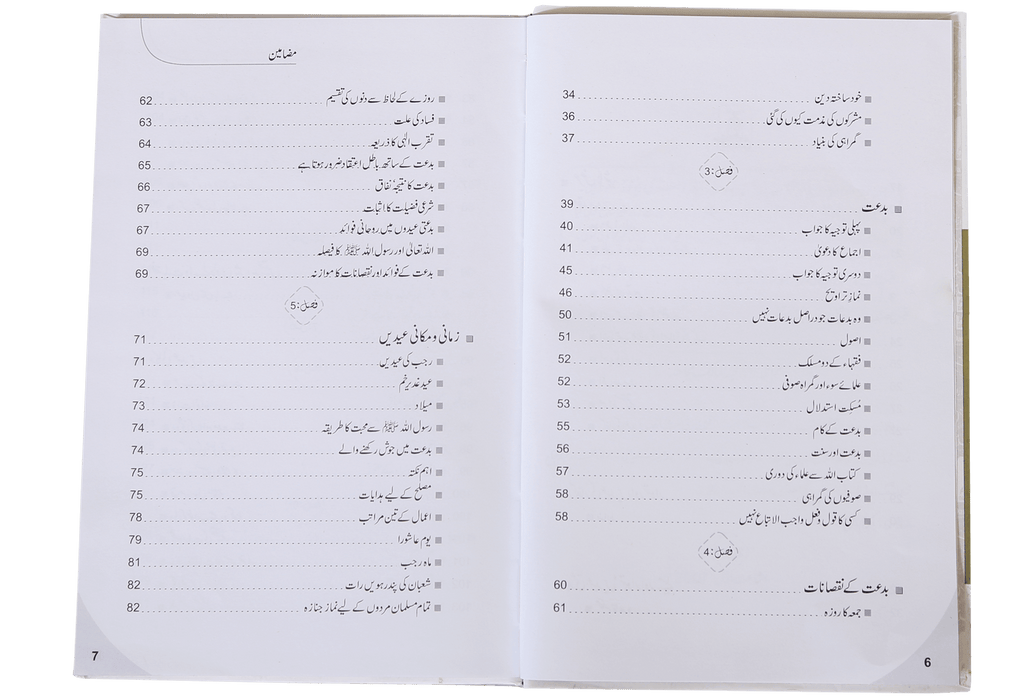 خود ساختہ دین 34
مشرکوں کی مذمت کیوں کی گئی 36
گمراہی کی بنیاد 37
فصل: 3
بدعت 39
پہلی توجیہ کا جواب 40
اجماع کا دعویٰ 41
دوسری توجیہ کا جواب 45
نماز تراویح 46
وہ بدعات جو دراصل بدعات نہیں 50
اصول 51
فقہاء کے دو مسلک 52
علمائے سوء اور گمراہ صوفی 52
مُسکِت استدلال 53
بدعت کے کام 55
بدعت اور سنت 56
کتاب اللہ سے علماء کی دوری 57
صوفیوں کی گمراہی 58
کسی کا قول و فعل واجب الاتباع نہیں 58
فصل: 4
بدعت کے نقصانات 60
جمعہ کا روزہ 61
6
مضامین
روزے کے لحاظ سے دنوں کی تقسیم 62
فساد کی علت 63
تقرب الٰہی کا ذریعہ 64
بدعت کے ساتھ باطل اعتقاد ضرور ہوتا ہے 65
بدعت کا نتیجۂ نفاق 66
شرعی فضیلت کا اثبات 67
بدعتی عیدوں میں روحانی فوائد 67
اللہ تعالیٰ اور رسول اللہ ﷺ کا فیصلہ 69
بدعت کے فوائد اور نقصانات کا موازنہ 69
فصل: 5
زمانی و مکانی عیدیں 71
رجب کی عیدیں 71
عید غدیر خم 72
میلاد 73
رسول اللہ ﷺ سے محبت کا طریقہ 74
بدعت میں جوش رکھنے والے 74
اہم نکتہ 75
مصلح کے لیے ہدایات 75
اعمال کے تین مراتب 78
یوم عاشورا 79
ماہ رجب 81
شعبان کی پندرہویں رات 82
تمام مسلمان مردوں کے لیے نماز جنازہ 82
7